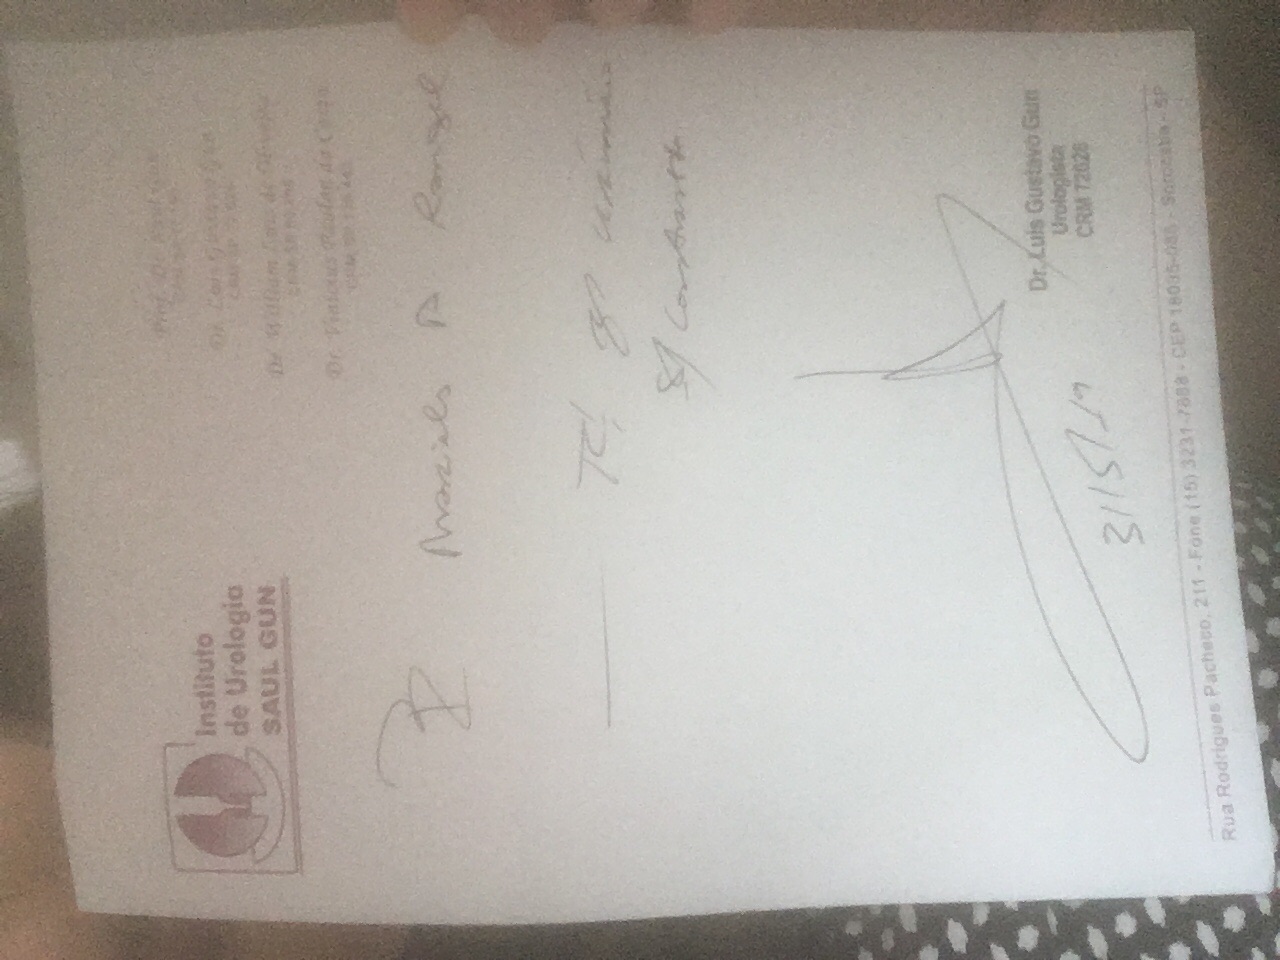 Instituto
de Urologia
SAUL GUN
Prof. Dr. Saul Gun
CRM SP
Dr. Luis Gustavo Gun
CRM SP
Dr. William Luis de Oliveira
CRM SP
Dr. Vinicius
CRM SP
A Rangel
TC
s/ contraste
Dr. Luis Gustavo Gun
Urologista
CRM 72626
31/5/19
Rua Rodrigues Pacheco, 211 - Fone (15) 3231-7688 - CEP 18035-085 - Sorocaba - SP